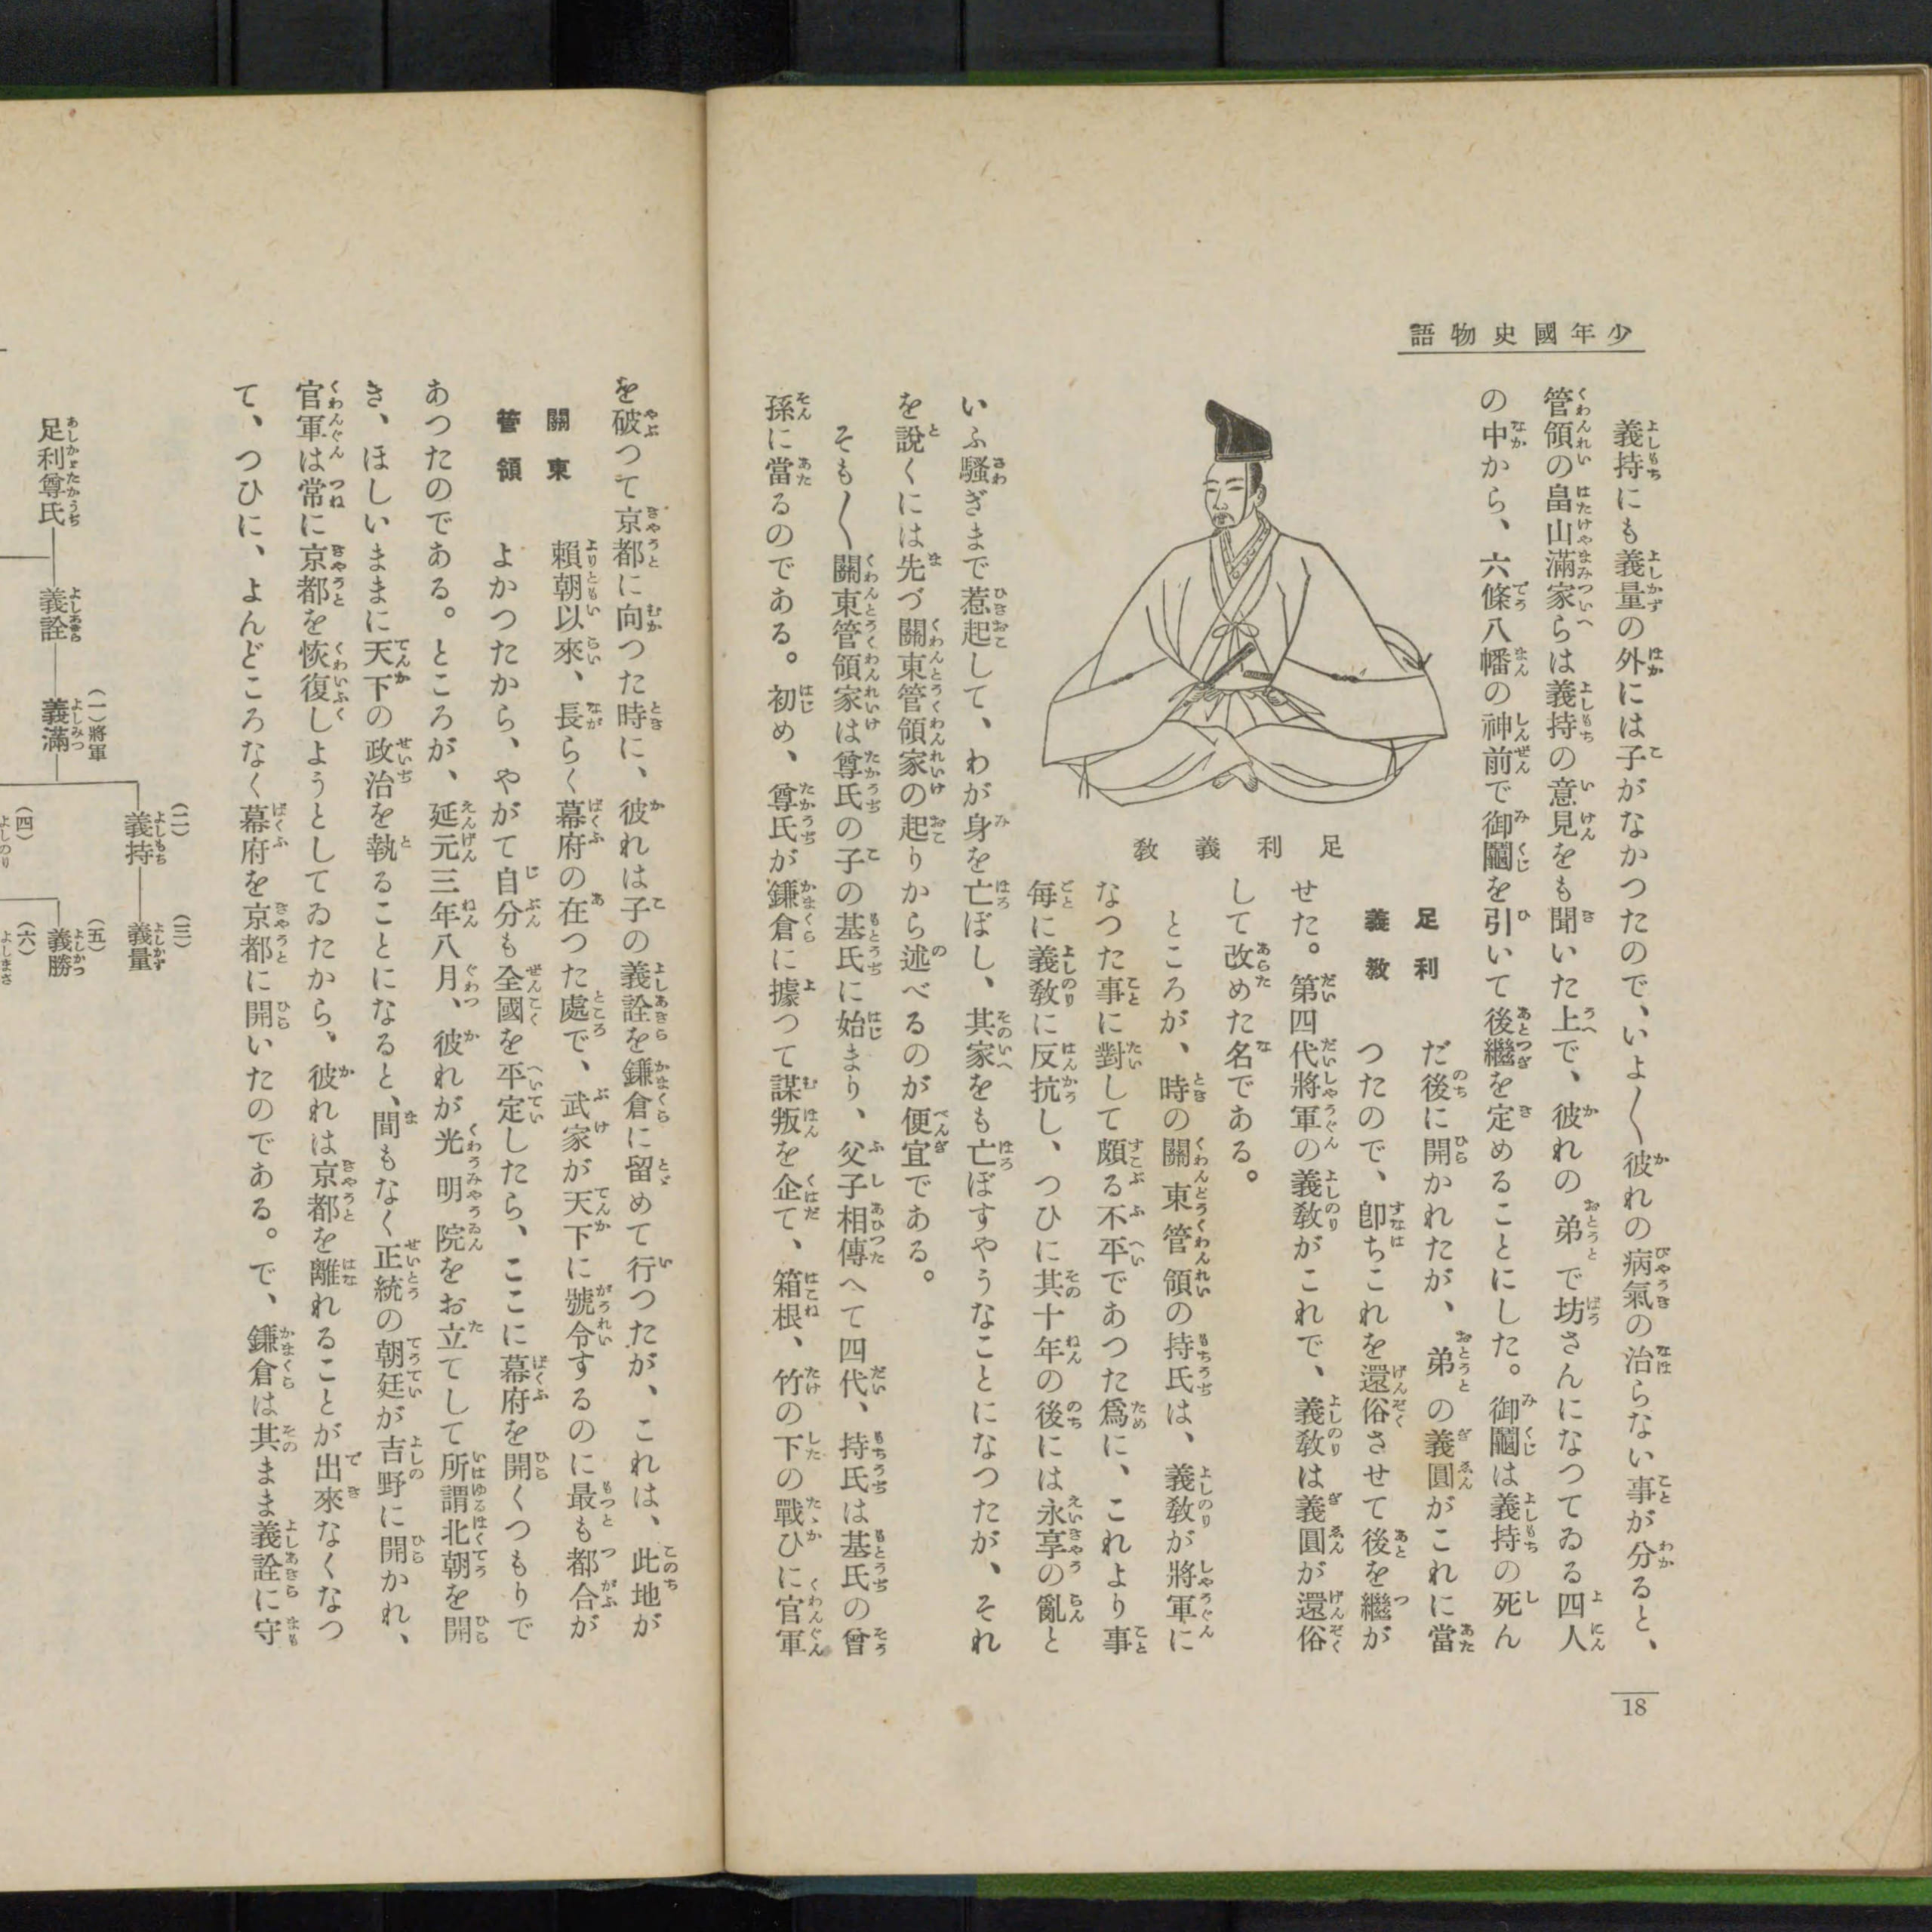 少年國史物語
義持にも義量の外には子がなかつたので、いよ〳〵彼れの病氣の治らない事が分ると、
管領の畠山滿家らは義持の意見をも聞いた上で、彼れの弟で坊さんになつてゐる四人
の中から、六條八幡の神前で御鬮を引いて後繼を定めることにした。御鬮は義持の死ん
足利
義敎
だ後に開かれたが、弟の義圓がこれに當
つたので、卽ちこれを還俗させて後を繼が
せた。第四代將軍の義敎がこれで、義敎は義圓が還俗
して改めた名である。
足利義敎
ところが、時の關東管領の持氏は、義敎が將軍に
なつた事に對して頗る不平であつた爲に、これより事
每に義敎に反抗し、つひに其十年の後には永享の亂と
いふ騷ぎまで惹起して、わが身を亡ぼし、其家をも亡ぼすやうなことになつたが、それ
を說くには先づ關東管領家の起りから述べるのが便宜である。
そも〳〵關東管領家は尊氏の子の基氏に始まり、父子相傳へて四代、持氏は基氏の曾
孫に當るのである。初め、尊氏が鎌倉に據つて謀叛を企て、箱根、竹の下の戰ひに官軍
18
を破つて京都に向つた時に、彼れは子の義詮を鎌倉に留めて行つたが、これは、此地が
關東
管領
賴朝以來、長らく幕府の在つた處で、武家が天下に號令するのに最も都合が
よかつたから、やがて自分も全國を平定したら、ここに幕府を開くつもりで
あつたのである。ところが、延元三年八月、彼れが光明院をお立てして所謂北朝を開
き、ほしいままに天下の政治を執ることになると、間もなく正統の朝廷が吉野に開かれ、
官軍は常に京都を恢復しようとしてゐたから、彼れは京都を離れることが出來なくなつ
て、つひに、よんどころなく幕府を京都に開いたのである。で、鎌倉は其まま義詮に守
足利尊氏
義詮
(一)將軍
義滿
(二)
義持
(三)
義量
(四)
(五)
義勝
(六)